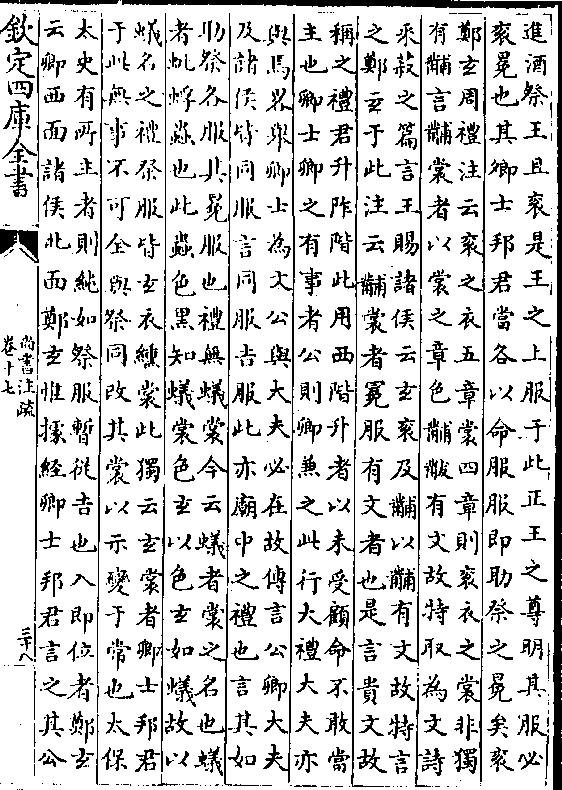 進酒祭王且衮是王之上服于此正王之尊明其服必
衮冕也其卿士邦君當各以命服服即助祭之冕矣衮
鄭𤣥周禮注云衮之衣五章裳四章則衮衣之裳非獨
有黼言黼裳者以裳之章色黼黻有文故特取為文詩
采菽之篇言王賜諸侯云𤣥衮及黼以黼有文故特言
之鄭𤣥于此注云黼裳者冕服有文者也是言貴文故
稱之禮君升阼階此用西階升者以未受顧命不敢當
主也卿士卿之有事者公則卿兼之此行大禮大夫亦
與焉畧舉卿士為文公與大夫必在故傳言公卿大夫
及諸侯皆同服言同服吉服此亦廟中之禮也言其如
助祭各服其冕服也禮無蟻裳今云蟻者裳之名也蟻
者蚍蜉蟲也此蟲色黑知蟻裳色𤣥以色𤣥如蟻故以
蟻名之禮祭服皆𤣥衣纁裳此獨云𤣥裳者卿士邦君
于此無事不可全與祭同改其裳以示變于常也太保
太史有所主者則純如祭服暫從吉也入即位者鄭𤣥
云卿西面諸侯北面鄭𤣥惟據經卿士邦君言之其公
欽定四庫全書
尚書注疏
卷十七
三十八